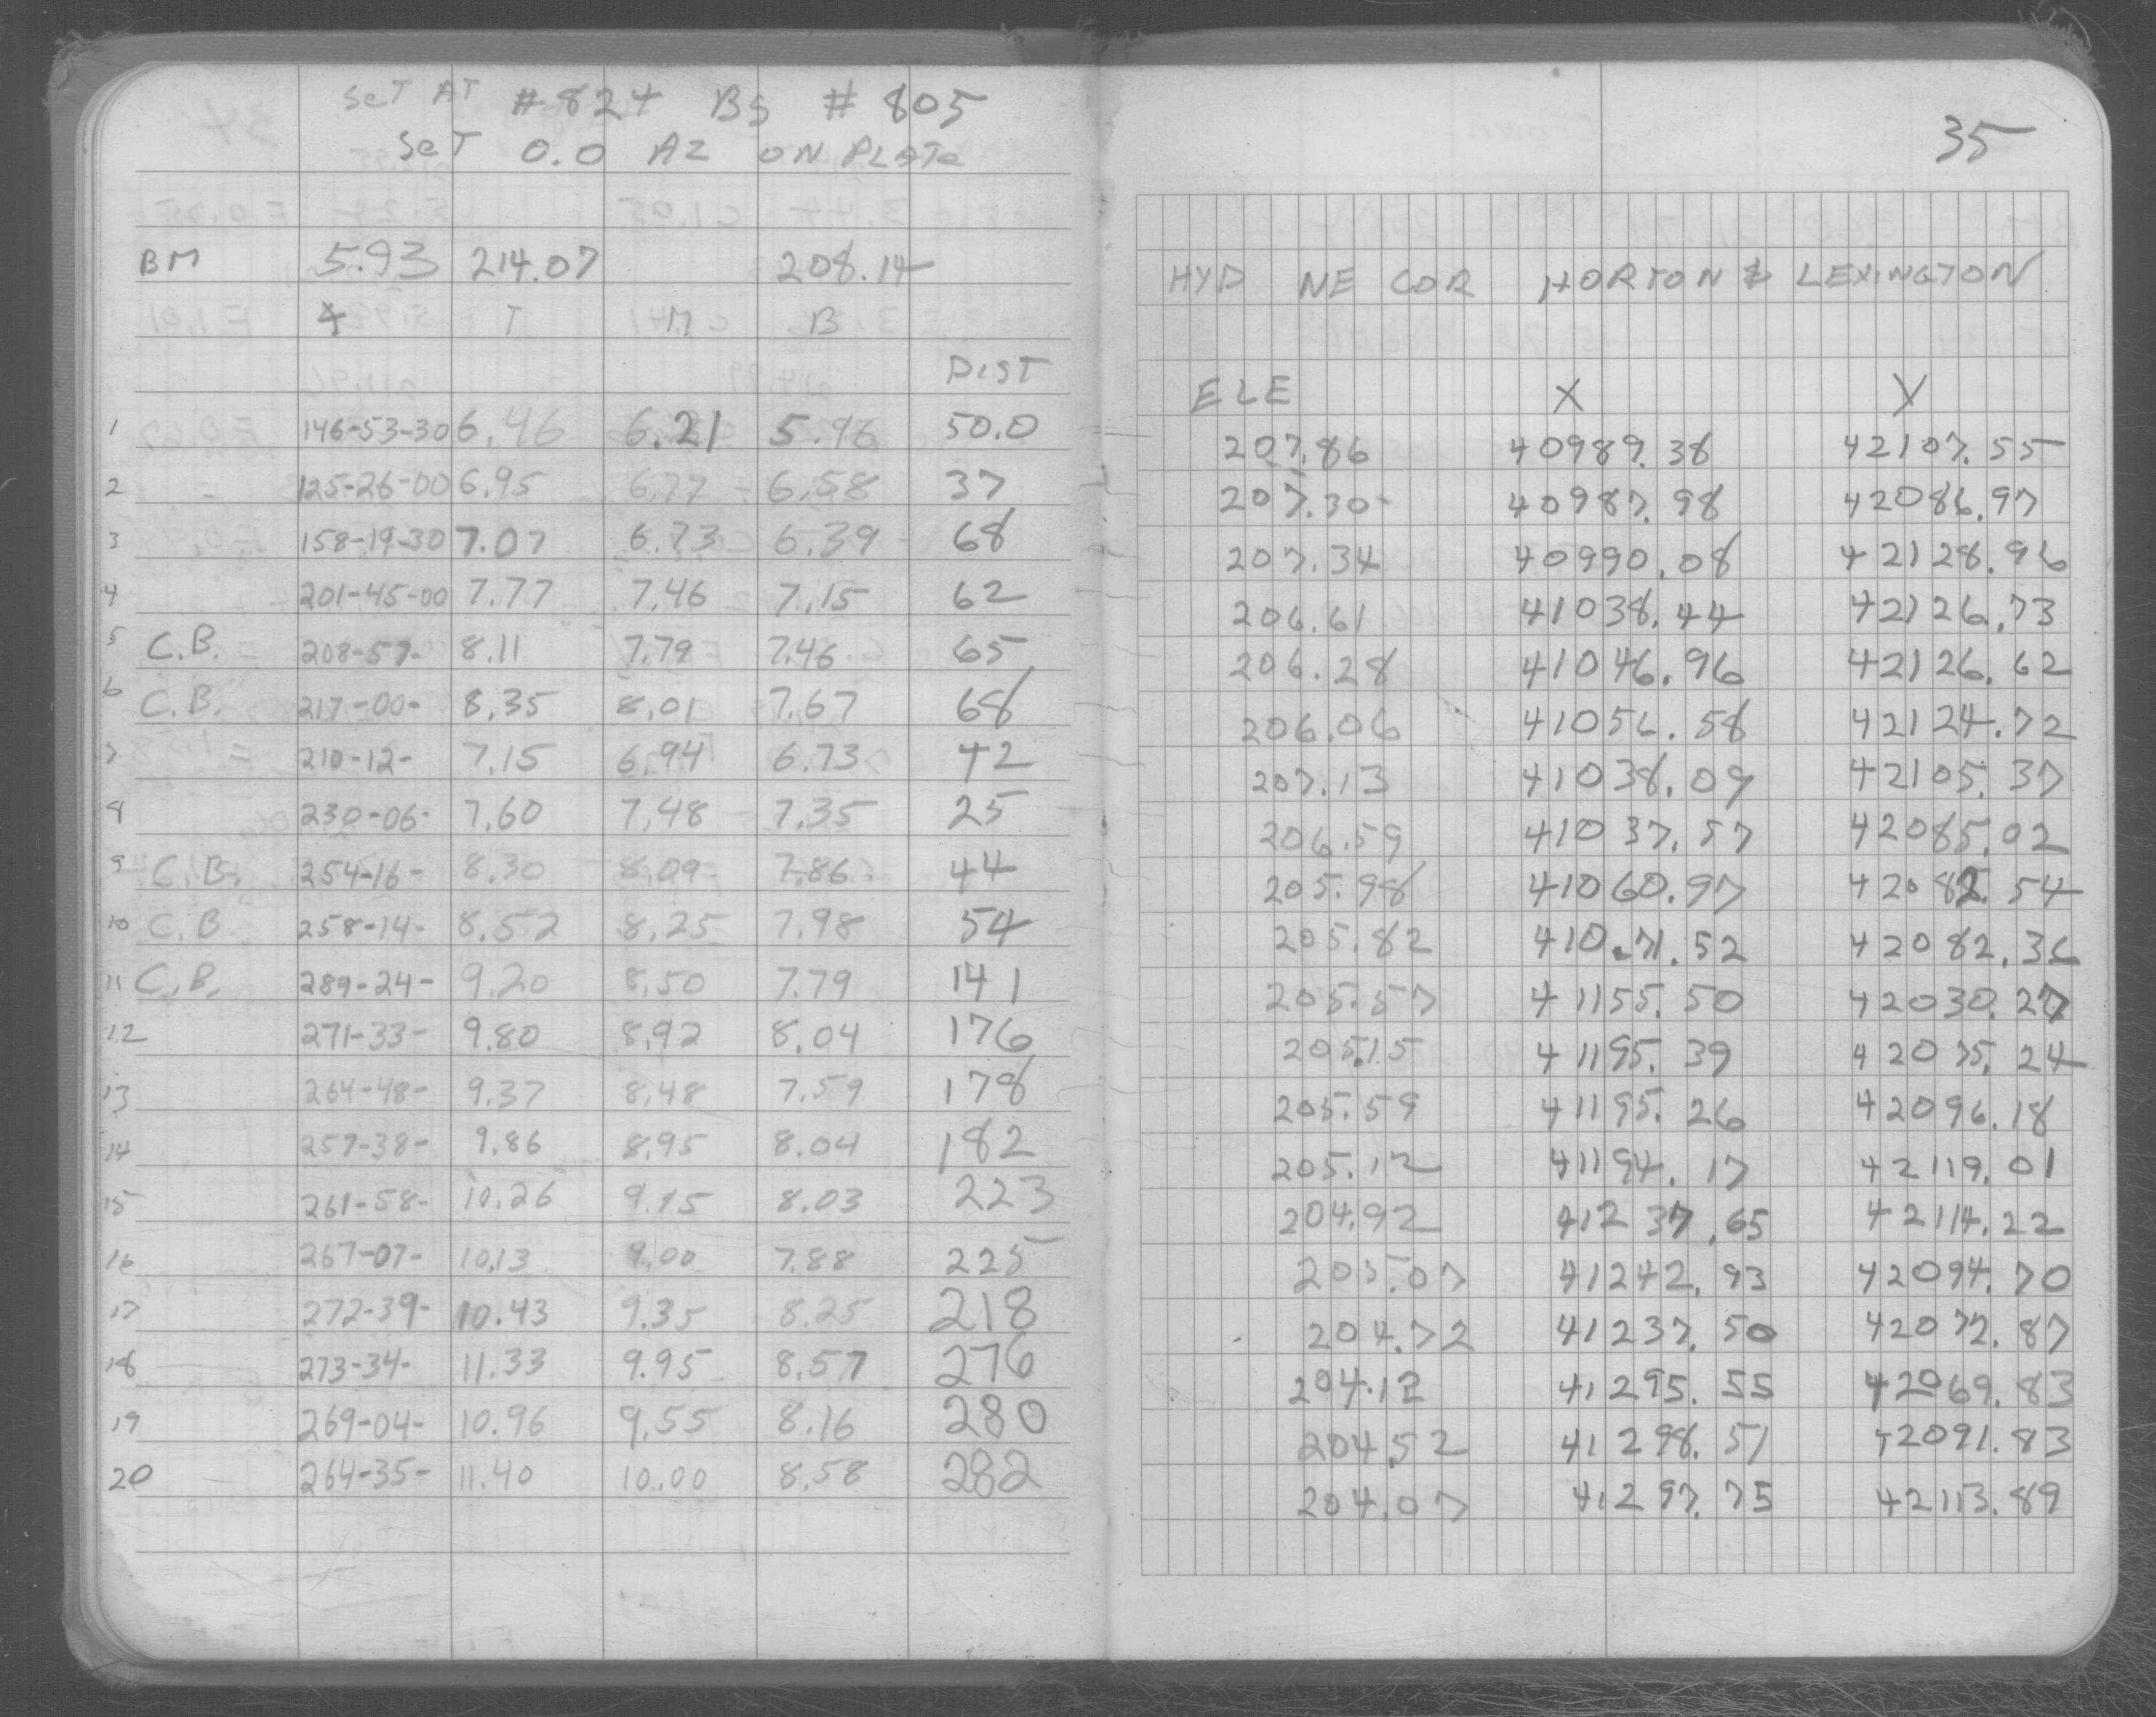 SET AT #824 BS #805
SET 0.0 AZ ON PLATE
BM 5.93 214.07 208.14
∡ T M B
DIST
1 146-53-30 6.46 6.21 5.96 50.0
2 125-26-00 6.95 6.77 6.58 37
3 158-19-30 7.07 6.73 6.39 68
4 201-45-00 7.77 7.46 7.15 62
5 C.B. 208-57- 8.11 7.79 7.46 65
6 C.B. 217-00- 8.35 8.01 7.67 68
7 210-12- 7.15 6.94 6.73 42
8 230-06- 7.60 7.48 7.35 25
9 C.B. 254-16- 8.30 8.09 7.86 44
10 C.B 258-14- 8.52 8.25 7.98 54
11 C.B. 289-24- 9.20 8.50 7.79 141
12 271-33- 9.80 8.92 8.04 176
13 264-48- 9.37 8.48 7.59 178
14 257-38- 9.86 8.95 8.04 182
15 261-58- 10.26 9.15 8.03 223
16 267-07- 10.13 9.00 7.88 225
17 272-39- 10.43 9.35 8.25 218
18 273-34- 11.33 9.95 8.57 276
19 269-04- 10.96 9.55 8.16 280
20 264-35- 11.40 10.00 8.58 282
35
HYD NE COR HORTON & LEXINGTON
ELE X Y
207.86 40989.38 42107.55
207.30 40987.98 42086.97
207.34 40990.08 42128.96
206.61 41038.44 42126.73
206.28 41046.96 42126.62
206.06 41056.58 42124.72
207.13 41038.09 42105.37
206.59 41037.57 42085.02
205.98 41060.97 42082.54
205.82 41071.52 42082.36
205.57 41155.50 42030.27
205.15 41195.39 42075.24
205.59 41195.26 42096.18
205.12 41194.17 42119.01
204.92 41237.65 42114.22
205.07 41242.93 42094.70
204.72 41237.50 42072.87
204.12 41295.55 42069.83
204.52 41298.51 42091.83
204.07 41297.75 42113.89